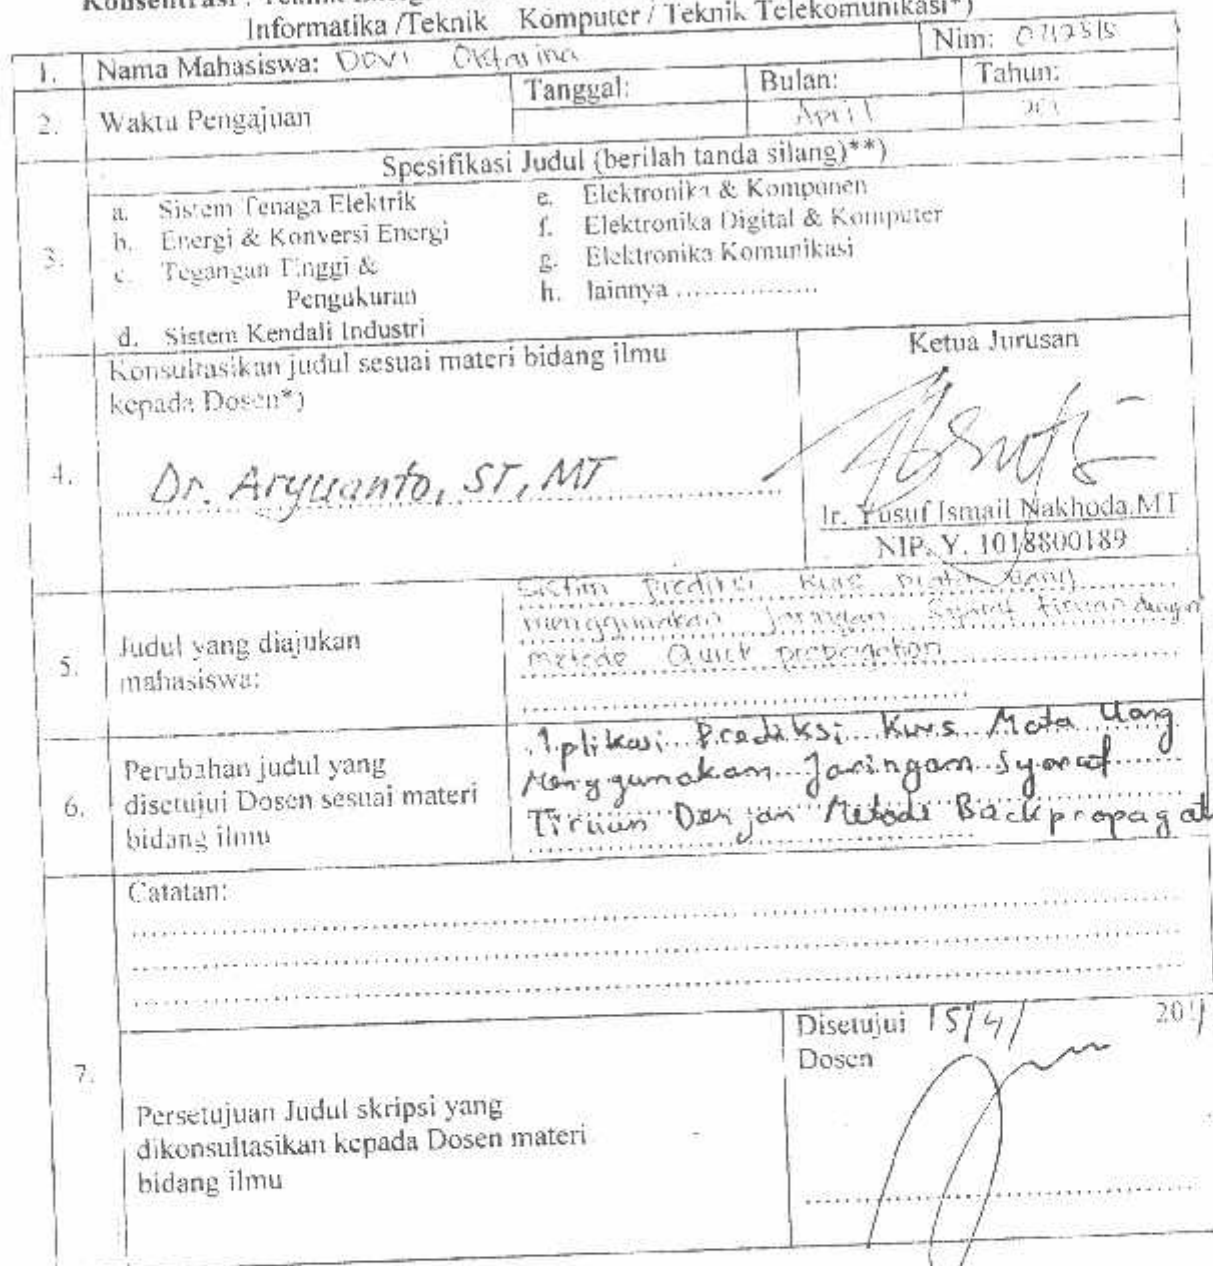 Konsentrasi : Teknik
Informatika /Teknik Komputer / Teknik Telekomunikasi*)
1. Nama Mahasiswa: Dovi Oktarina Nim:
2. Waktu Pengajuan Tanggal: Bulan: Tahun:
April
Spesifikasi Judul (berilah tanda silang)**)
3.
a. Sistem Tenaga Elektrik
b. Energi & Konversi Energi
c. Tegangan Tinggi &
Pengukuran
d. Sistem Kendali Industri
e. Elektronika & Komponen
f. Elektronika Digital & Komputer
g. Elektronika Komunikasi
h. lainnya ................
4.
Konsultasikan judul sesuai materi bidang ilmu
kepada Dosen*)
Dr. Aryuanto, ST, MT
Ketua Jurusan
Ir. Yusuf Ismail Nakhoda,MT
NIP. Y. 1018800189
5. Judul yang diajukan
mahasiswa:
Sistim Prediksi kurs mata uang
menggunakan jaringan Syaraf tiruan dengan
metode Quick propagation
6. Perubahan judul yang
disetujui Dosen sesuai materi
bidang ilmu
Aplikasi Prediksi Kurs Mata Uang
Menggunakan Jaringan Syaraf
Tiruan Dengan Metode Backpropagat
7.
Catatan:
Persetujuan Judul skripsi yang
dikonsultasikan kepada Dosen materi
bidang ilmu
Disetujui 15/4/ 2011
Dosen